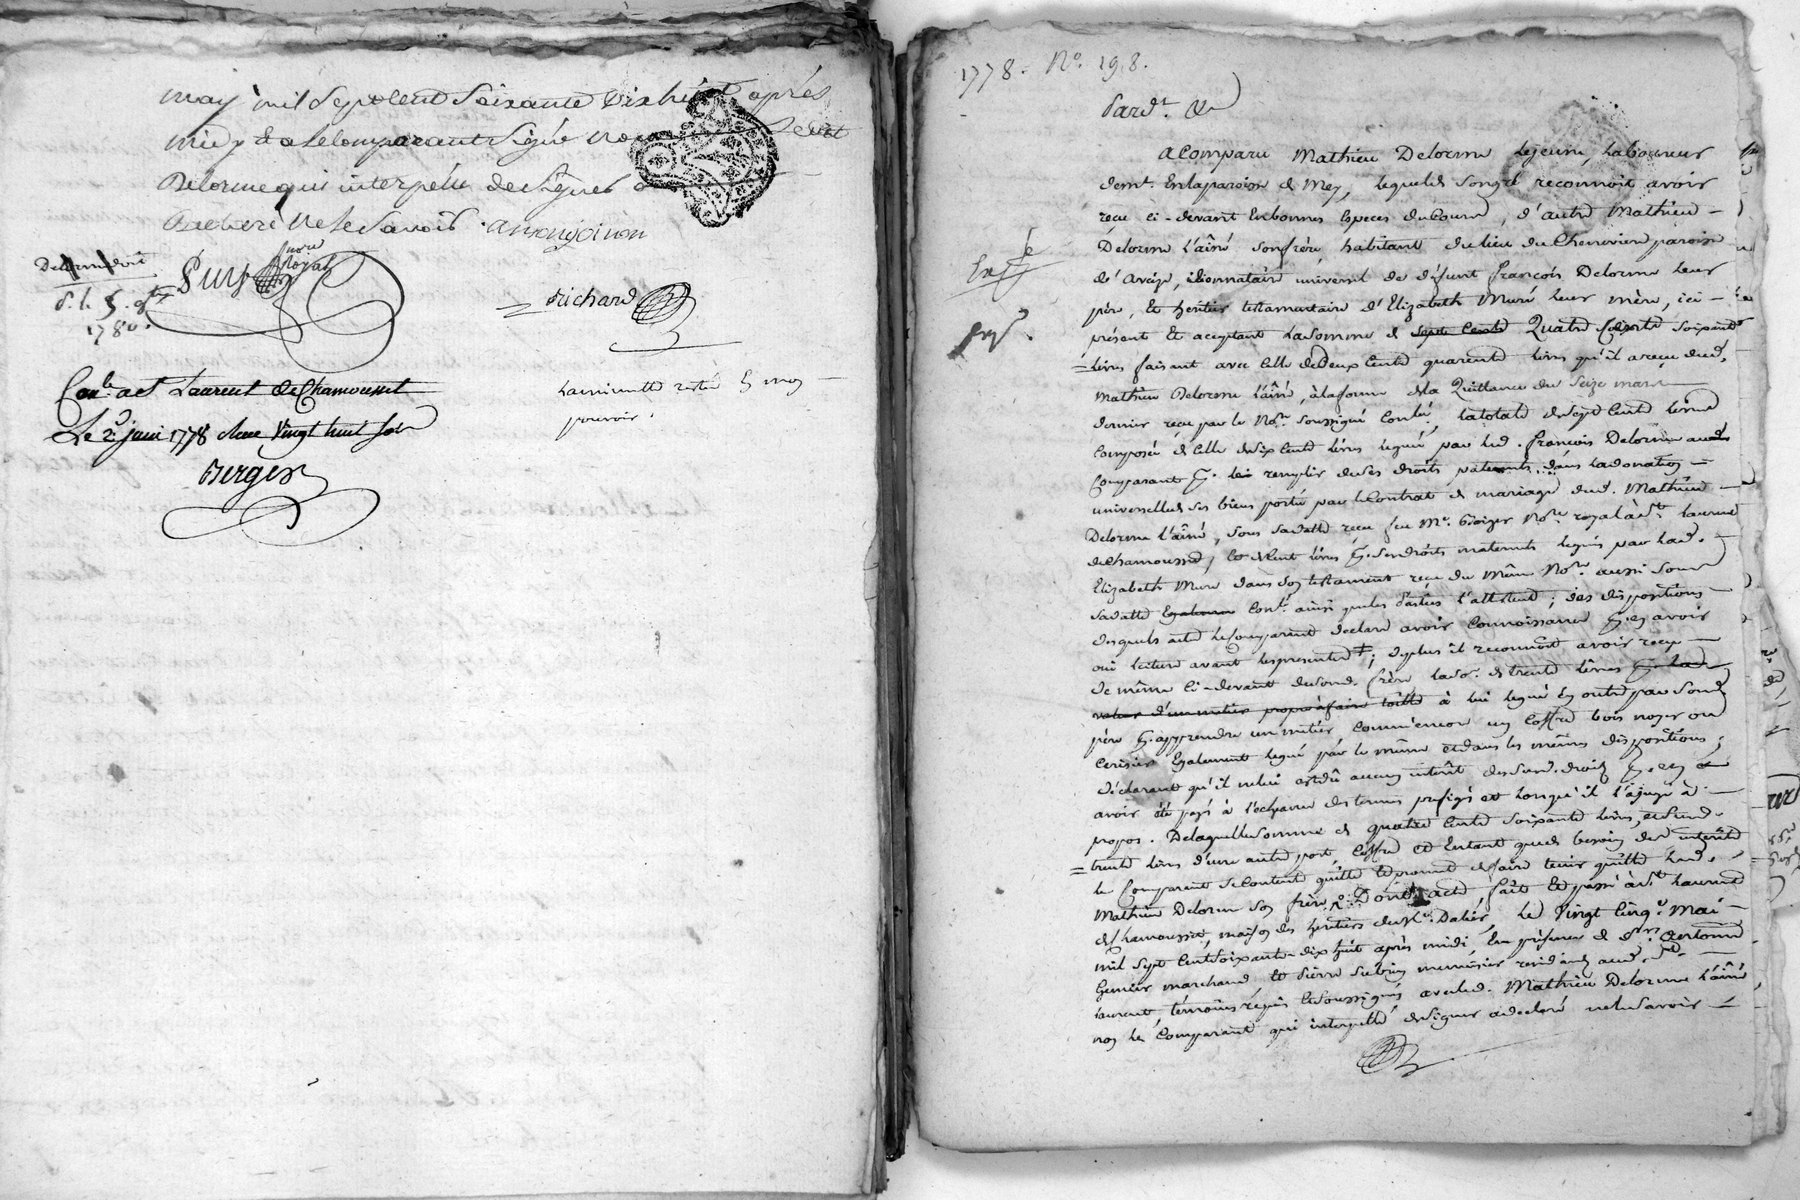 may mil sept cent soixante dix huit après
midy et a le comparant signé non
Delorme qui interpélé de signer a
declaré ne le savoir
Puy nore royal
Delorme doit
d. l. 5. 
1780.
Richard
Conlé a St Laurent de Chamousset
Le 2 juin 1778 Reçu vingt huit sols
Berger
La minutte resté en mon
pouvoir.
1778. No. 198.
Pardt. &
A Comparu Mathieu Delorme le jeune, Laboureur
demt. en la paroisse de Mey, lequel de son gré reconnoit avoir
reçu ci-devant en bonnes especes de cours, d'autre Mathieu
Delorme l'aîné son frère, habitant du lieu du Chenevier paroisse
d'Aveize, donnataire universel de défunt françois Delorme leur
père, et heritier testamentaire d'Elizabeth Muré leur mère, ici
présent et acceptant la somme de sept cents Quatre cents soixante
livres faisant avec celle de Deux cents quarente livres qu'il a reçu dud.
Mathieu Delorme l'aîné, à la forme de la Quittance du seize mars
dernier reçu par le Nore. soussigné Conlé, la totale de sept cents livres
composée de celle de six cents livres legué par led. françois Delorme aud.
Comparant pr. le remplir de ses droits paternels dans la donation
universelle de ses biens porté par le Contrat de mariage dud. Mathieu
Delorme l'aîné, sous sa datte reçu feu Me. Nore. royal à St. Laurent
de Chamousset, et de Cent livres pr. ses droits maternels legués par lad.
Elizabeth Muré dans son testament reçu du même Nore. aussi sous
sa datte Conlé. ainsi que les Parties l'attestent; des dispositions
desquels actes le Comparant declare avoir Connoissance pr. en avoir
oui lecture avant les presentes; de plus il reconnoit avoir reçu
de même ci-devant de sond. frère la so. de trente livres pr. la
valeur d'un métier propre à faire toille à lui legué en outre par sond.
père pr. apprendre un métier, comme encor un Coffre bois noyer ou
cerisier Egalement legué par le même et dans les mêmes dispositions;
déclarant qu'il ne lui est dû aucun intérêt de sesd. droits pr. en
avoir été payé à l'echeance des termes prefigés et lorsqu'il l'a jugé à
propos. De laquelle somme de quatre cents soixante livres, et de celle de
trente livres d'une autre part, Coffre et Entant que de besoin des intérêts
le Comparant se Contente quitte et promet de faire tenir quitte led.
Mathieu Delorme son frère. Dont acte fait et passé à St. Laurent
de Chamousset, maison des heritiers du Sr. Dalié, le Vingt Cinq. Mai
mil sept Cent soixante-dix huit après midi, En présence de Srs. Antoine
marchand et Pierre menuisier residants aud. St.
Laurent, témoins requis et soussignés avec led. Mathieu Delorme l'aîné
non le Comparant qui interpellé de signer a declaré ne le savoir